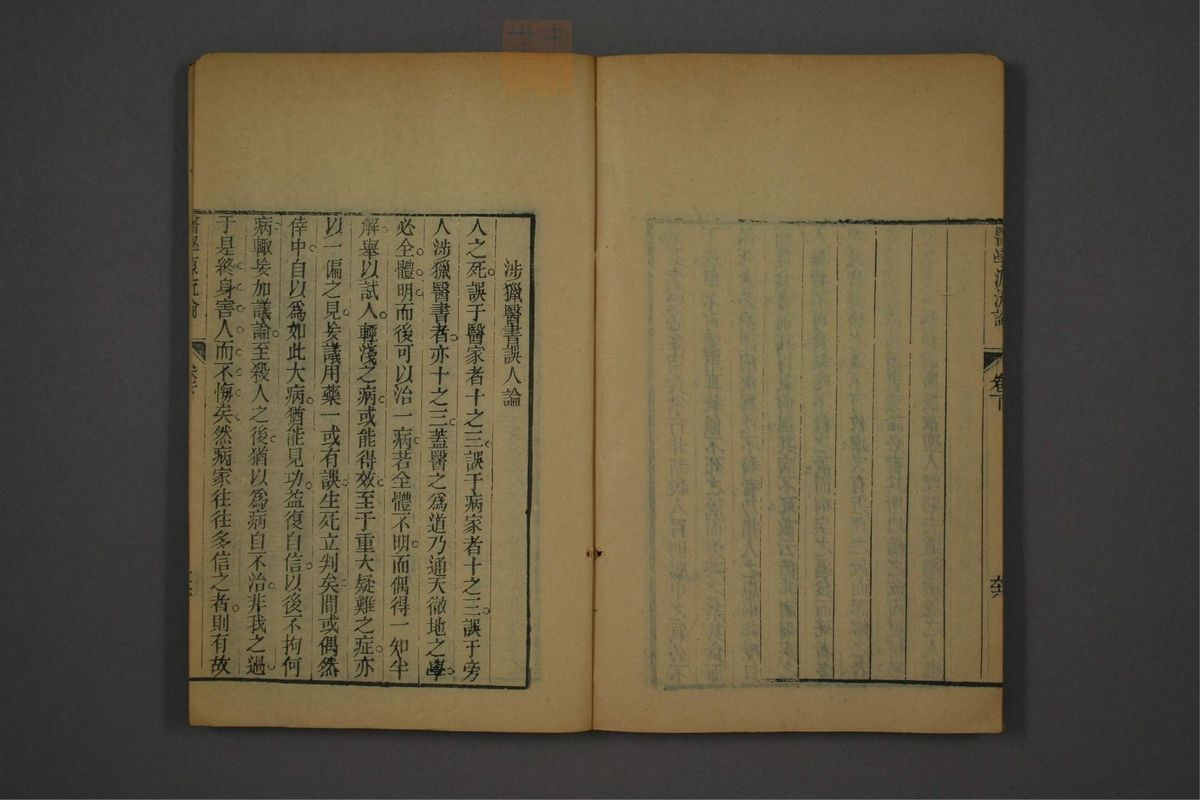 醫學源流論
卷下
涉獵醫書誤人論
人之死誤于醫家者十之三誤于病家者十之三誤于旁
人涉獵醫書者亦十之三蓋醫之爲道乃通天徹地之學
必全體明而後可以治一病若全體不明而偶得一知半
解舉以試人輕淺之病或能得效至于重大疑難之症亦
以一偏之見妄議用藥一或有誤生死立判矣間或偶然
倖中自以爲如此大病猶能見功益復自信以後不拘何
病輒妄加議論至殺人之後猶以爲病自不治非我之過
于是終身害人而不悔矣然病家往往多信之者則有故
醫學源流論